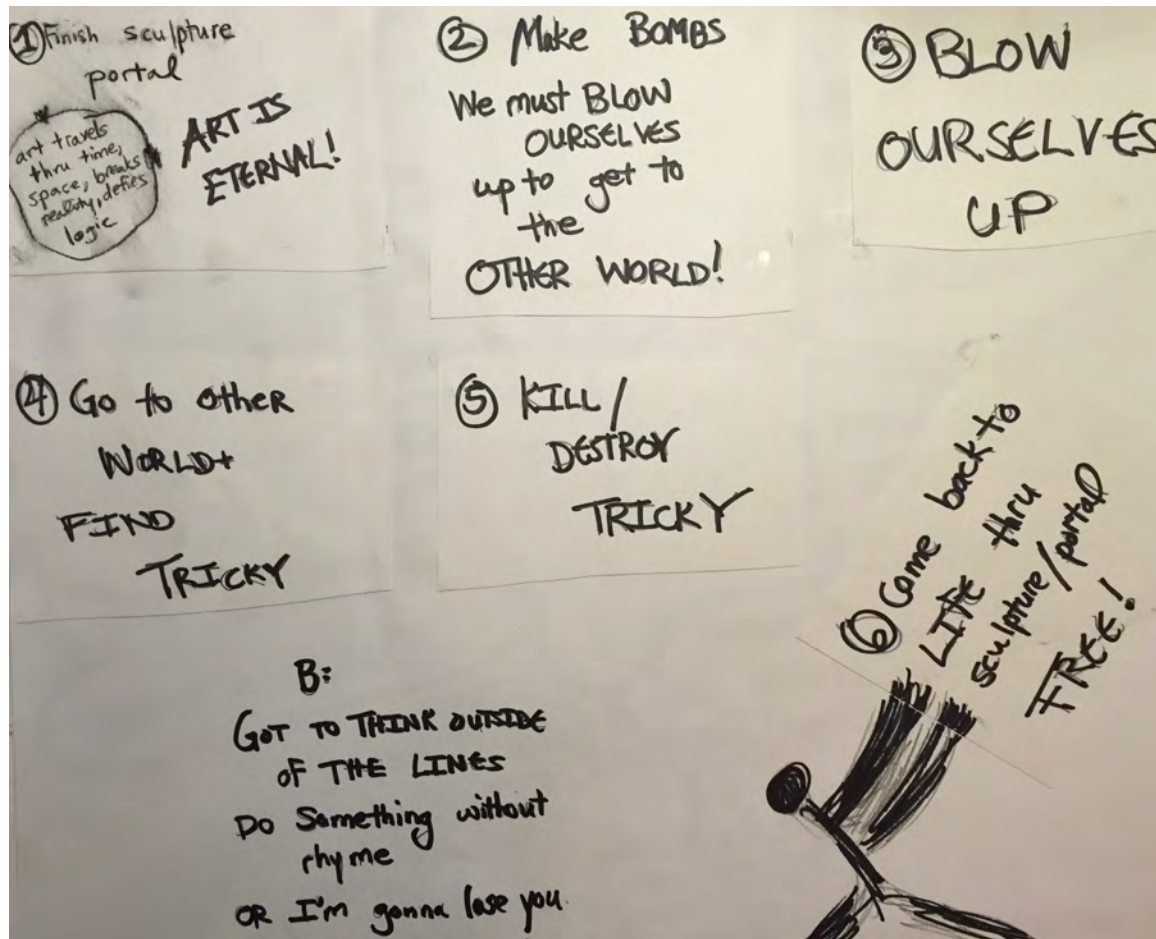 ① Finish sculpture
portal
art travels
thru time,
space, breaks
reality, defies
logic
ART IS
ETERNAL!
② Make BOMBS
We must BLOW
OURSELVES
up to get to
the
OTHER WORLD!
③ BLOW
OURSELVES
UP
④ Go to other
WORLD +
FIND
TRICKY
⑤ KILL /
DESTROY
TRICKY
⑥ Come back to
LIFE thru
sculpture/portal
FREE!
B:
GOT TO THINK OUTSIDE
OF THE LINES
DO Something without
rhyme
OR I'm gonna lose you.